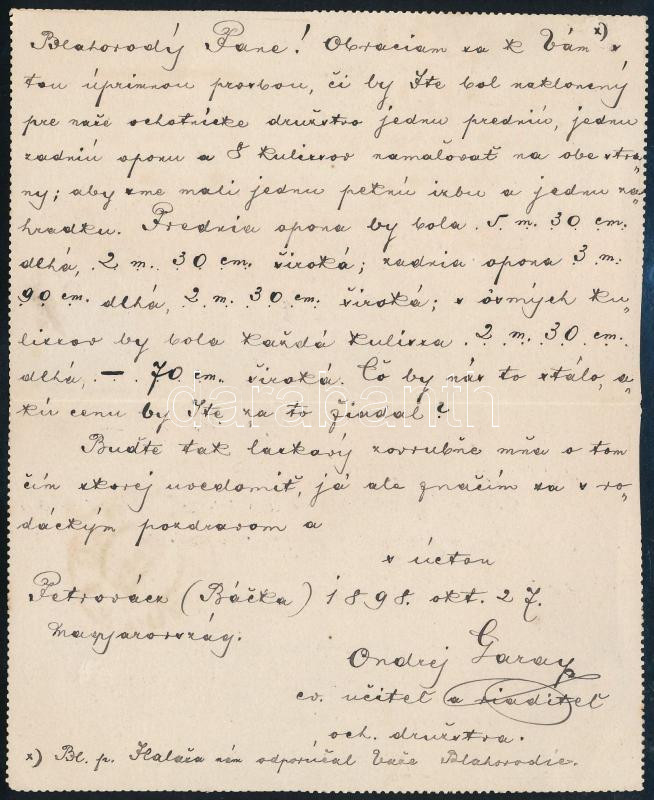 Blahorodý Pane! Obraciam sa k Vám x) s
tou úprimnou prosbou, či by Ste bol naklonený
pre naše ochotnícke družstvo jednu prednú, jednu
zadniú oponu a 8 kulissov namaľovať na obe stra„
ny; aby sme mali jednu peknú izbu a jednu za„
hradku. Prednia opona by bola 5 m. 30 cm.
dlhá, 2 m. 30 cm. široká; zadnia opona 3 m.
90 cm. dlhá, 2 m. 30 cm. široká; z ôsmých ku„
lissov by bola každá kulissa 2 m. 30 cm.
dlhá, — 70 cm. široká. Čo by nás to stálo, a„
kú cenu by Ste za to žiadal?
Buďte tak láskavý zovrubne mňa o tom
čím skorej uvedomiť, já ale značím sa s ro„
dáckým pozdravom a
s úctou
Petrovácz (Báčka) 1898. okt. 27.
Magyarország.
Ondrej Garay
ev. učiteľ a riaditeľ
och. družstva.
x) Bl. p. Halaša nám odporúčal Vaše Blahorodie.
darabanth